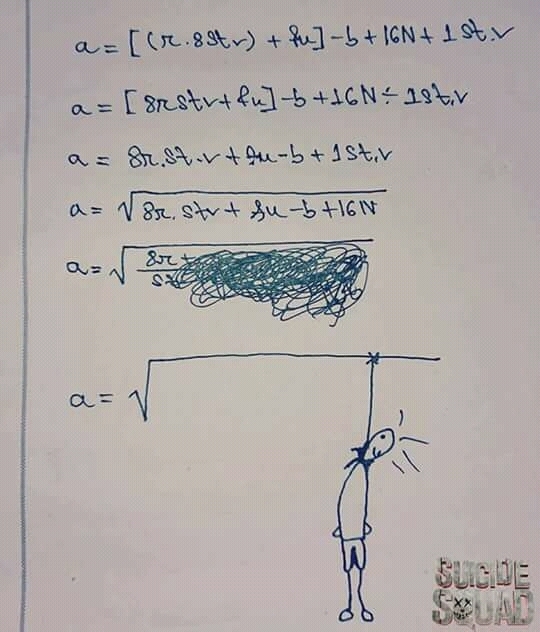 a = [(r.8stv) + fu] - b + 16N + 1st.v
a = [8rstv + fu] - b + 16N ÷ 1st.v
a = 8r.st.v + fu - b + 1st.v
a = √8r.stv + fu - b + 16N
a = √8r +
a = √
SUICIDE
SQUAD